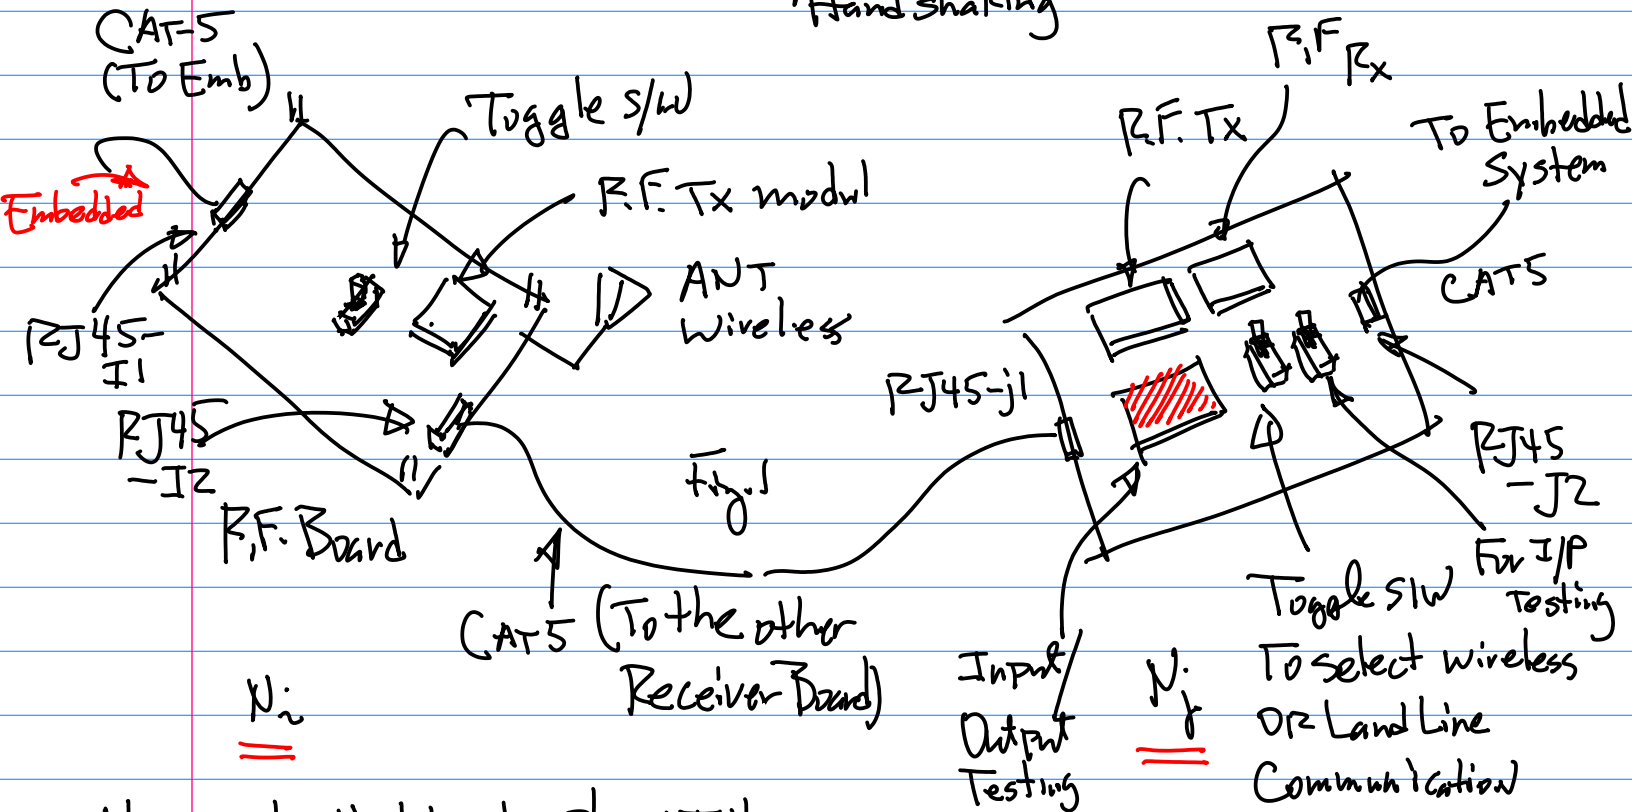 Handshaking
CAT-5
(To Emb)
Toggle s/w
R.F. Tx modul
Embedded
ANT
Wireless
RJ45-
I1
RJ45
-I2
R.F. Board
Fig.1
CAT5 (To the other
Receiver Board)
Ni
R.F Rx
R.F. Tx
To Embedded
System
CAT5
RJ45-j1
RJ45
-J2
For I/P
Testing
Toggle s/w
To select wireless
OR Land Line
Communication
Input
Output
Testing
Nj